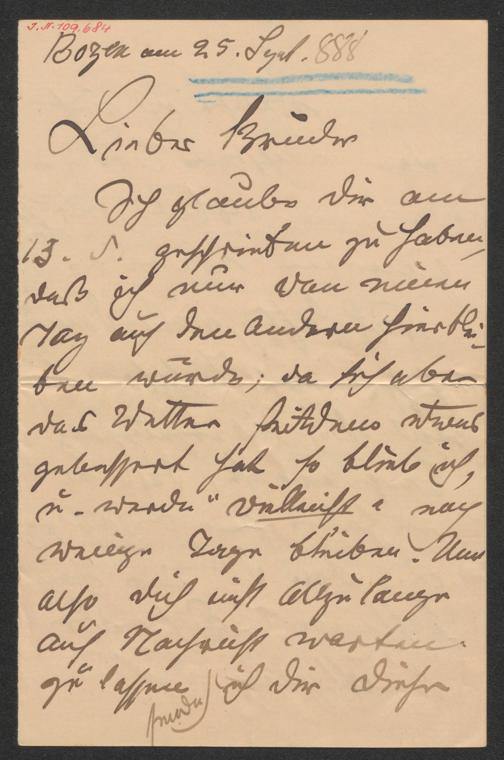 J.N. 109.684
Bozen am 25. Sept. 888
Lieber Bruder
Ich glaube Dir am
13. d. geschrieben zu haben,
daß ich nur von einen
Tag auf den Andern hierblei-
ben würde; da sich aber
das Wetter seitdem etwas
gebessert hat so blieb ich,
u. werde "vielleicht" noch
wenige Tage bleiben. Um
also Dich nicht allzulange
auf Nachricht warten
zu lassen sende ich Dir diese